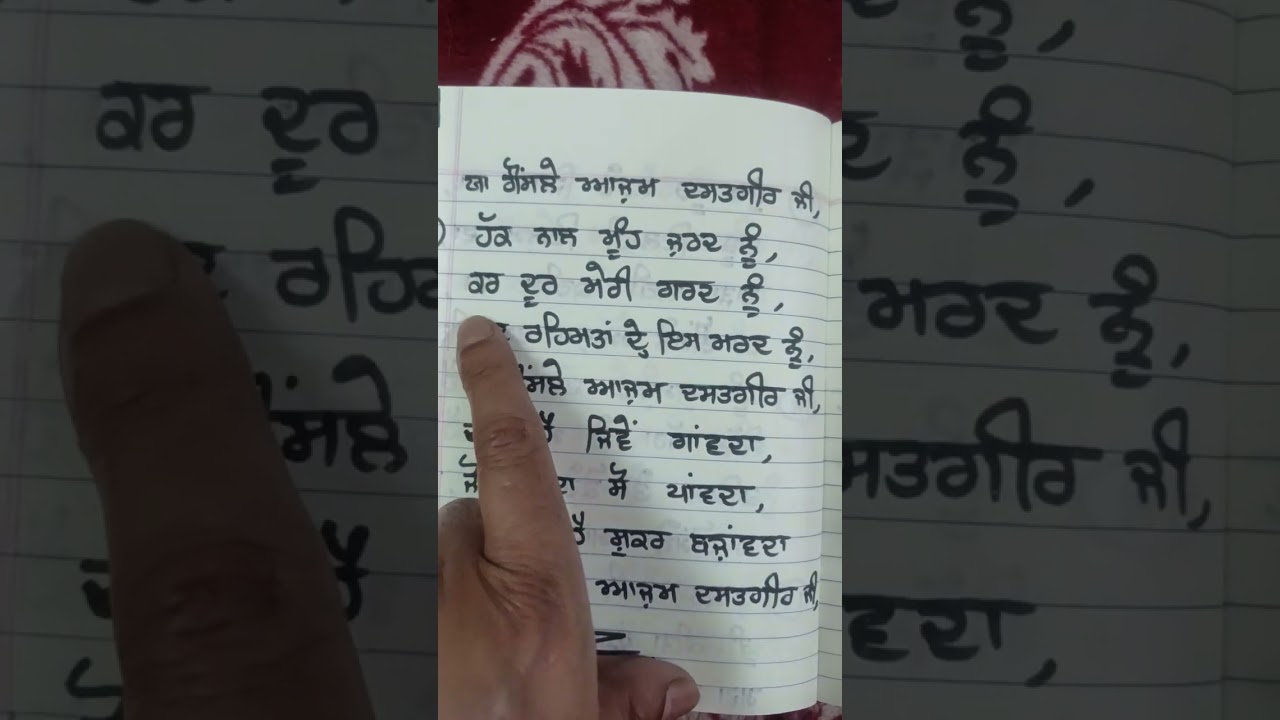 ਯਾ ਗੌਂਸਲੇ ਆਜ਼ਮ ਦਸਤਗੀਰ ਜੀ,
ਹੱਕ ਨਾਲ ਮੂੰਹ ਜ਼ਰਦ ਨੂੰ,
ਕਰ ਦੂਰ ਮੇਰੀ ਗਰਦ ਨੂੰ,
ਰਹਿਮਤਾਂ ਦੇ ਇਸ ਮਰਦ ਨੂੰ,
ਆਜ਼ਮ ਦਸਤਗੀਰ ਜੀ,
ਜਿਵੇਂ ਗਾਂਵਦਾ,
ਸੋ ਪਾਂਵਦਾ,
ਸ਼ੁਕਰ ਬਜਾਂਵਦਾ
ਆਜ਼ਮ ਦਸਤਗੀਰ ਜੀ,